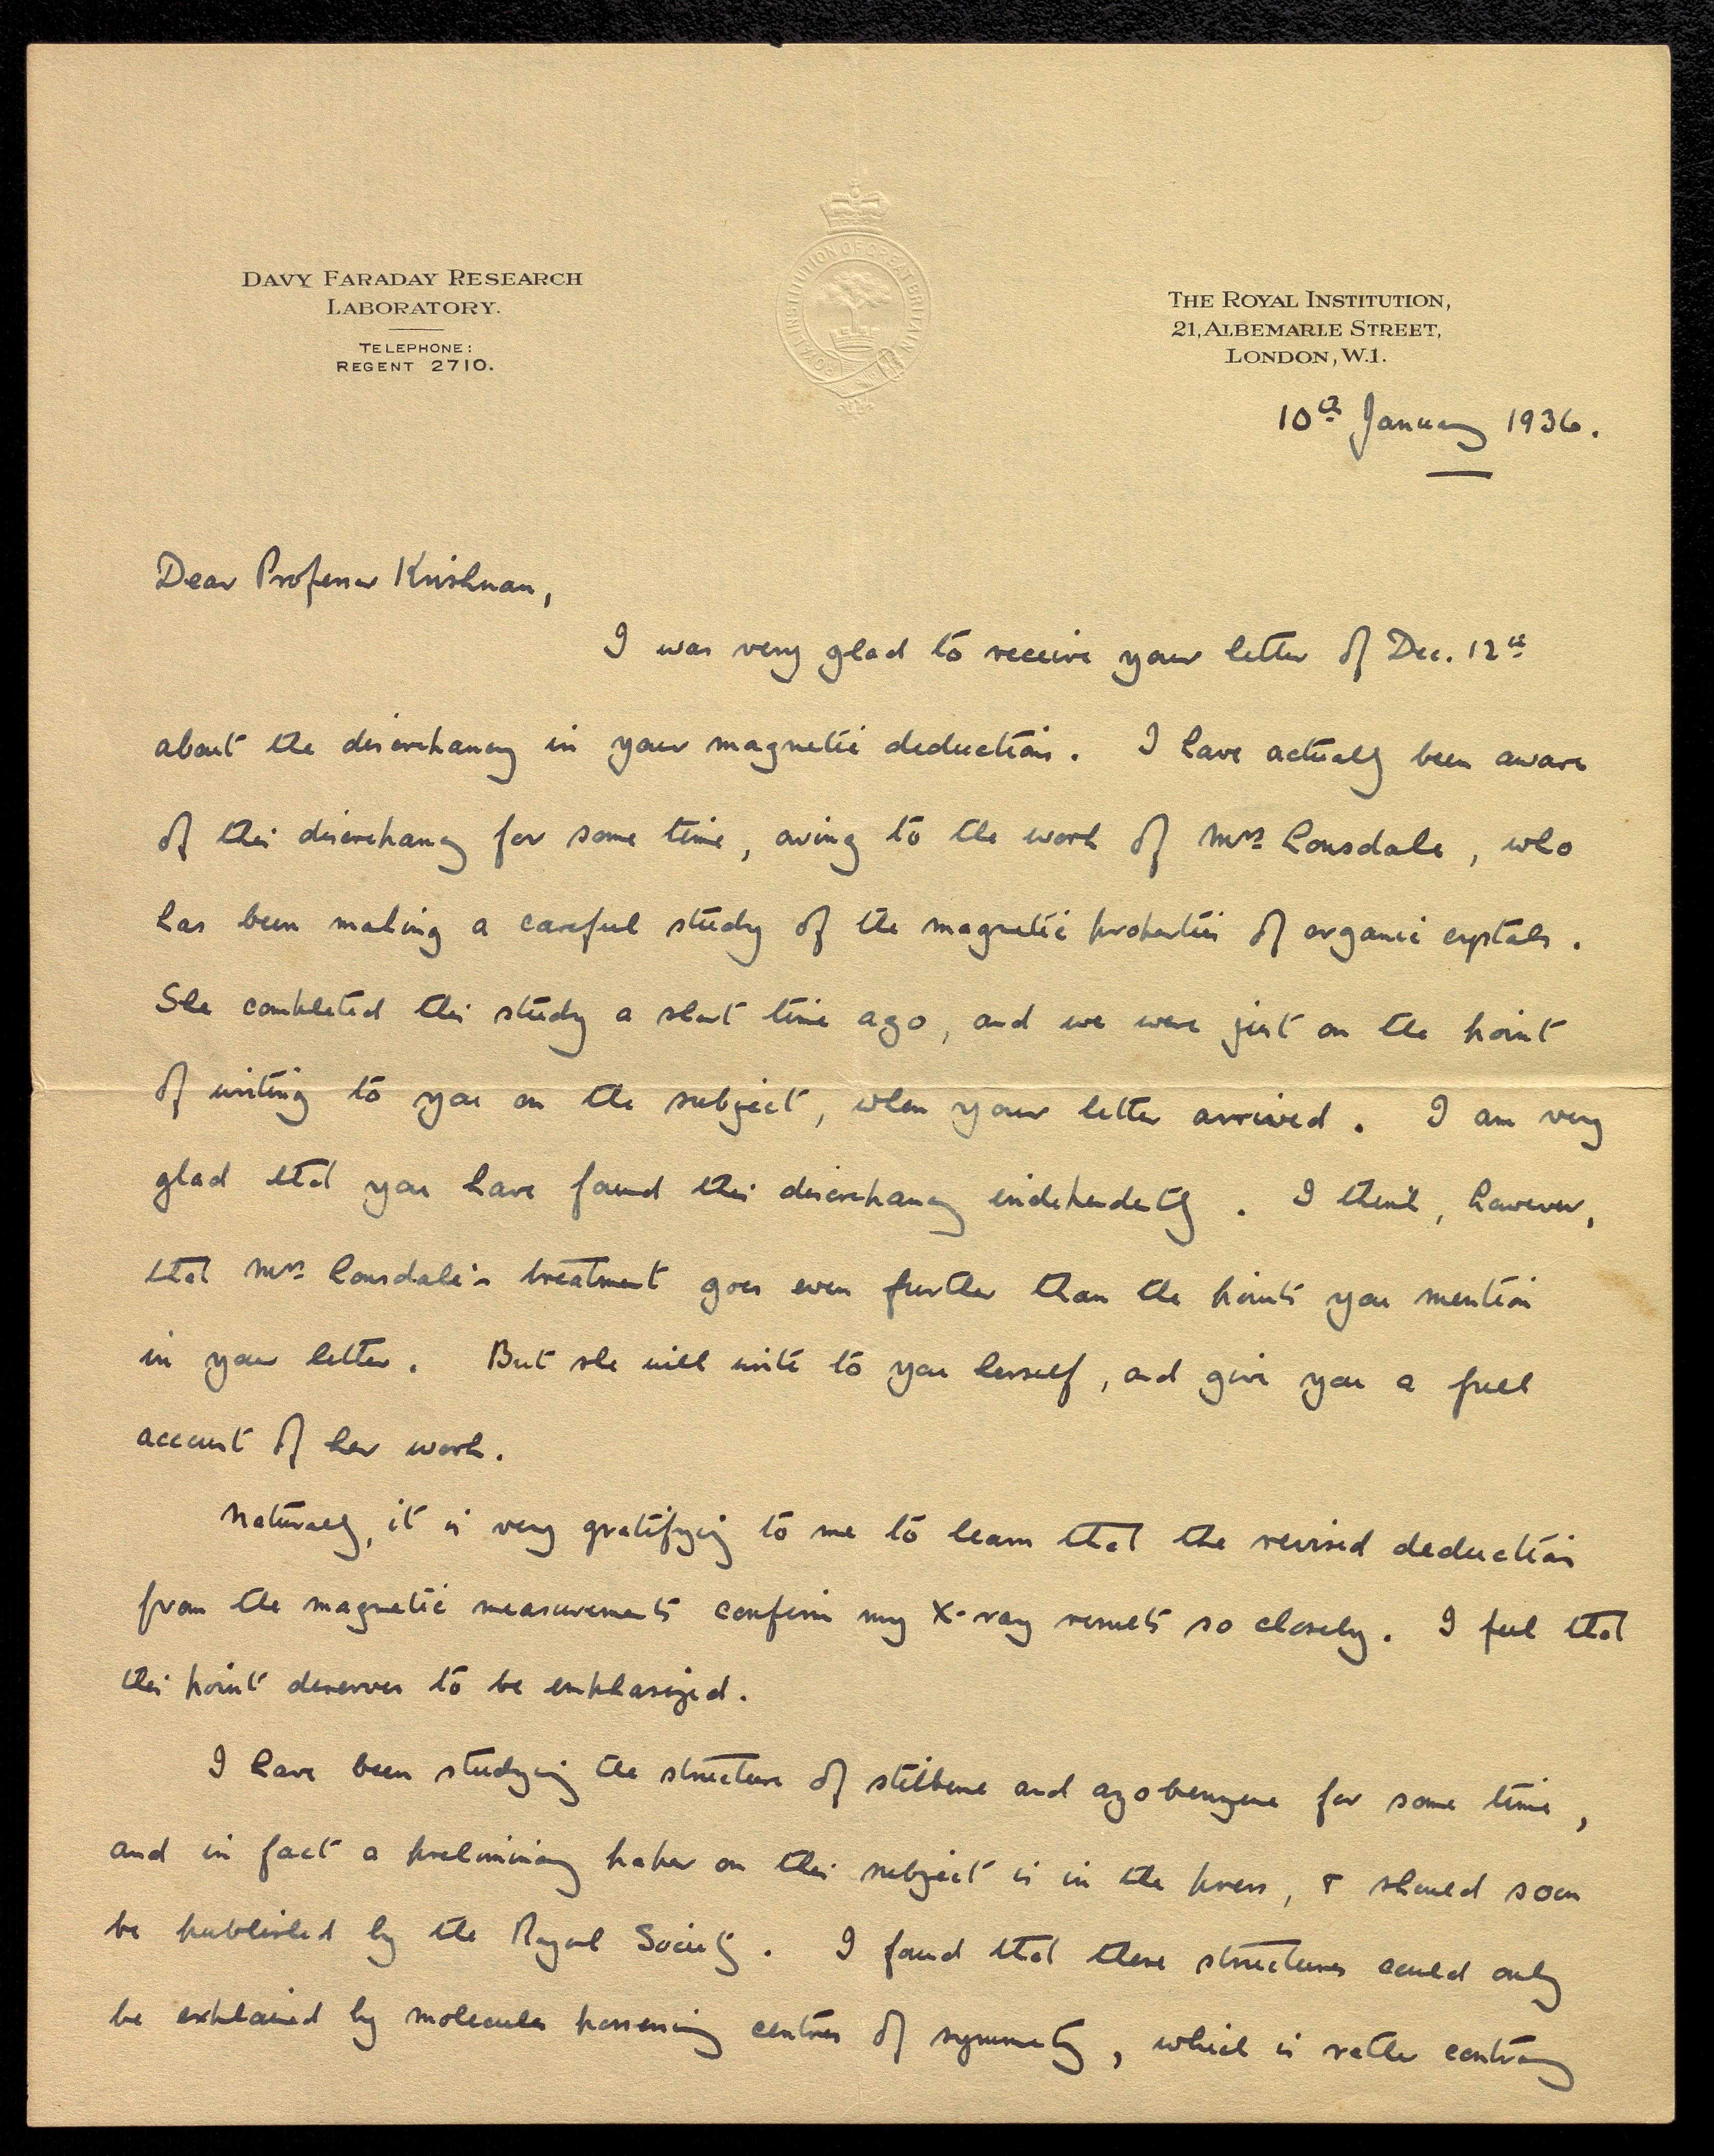 DAVY FARADAY RESEARCH
LABORATORY.
TELEPHONE:
REGENT 2710.
ROYAL INSTITUTION OF GREAT BRITAIN
THE ROYAL INSTITUTION,
21, ALBEMARLE STREET,
LONDON, W.1.
10th January 1936.
Dear Professor Krishnan,
I was very glad to receive your letter of Dec. 12th
about the discrepancy in your magnetic deductions. I have actually been aware
of this discrepancy for some time, owing to the work of Mrs Lonsdale, who
has been making a careful study of the magnetic properties of organic crystals.
She completed this study a short time ago, and we were just on the point
of writing to you on the subject, when your letter arrived. I am very
glad that you have found this discrepancy independently. I think, however,
that Mrs Lonsdale's treatment goes even further than the points you mention
in your letter. But she will write to you herself, and give you a full
account of her work.
Naturally, it is very gratifying to me to learn that the revised deductions
from the magnetic measurements confirm my X-ray results so closely. I feel that
this point deserves to be emphasized.
I have been studying the structure of stilbene and azobenzene for some time,
and in fact a preliminary paper on this subject is in the press, & should soon
be published by the Royal Society. I found that these structures could only
be explained by molecules possessing centres of symmetry, which is rather contrary